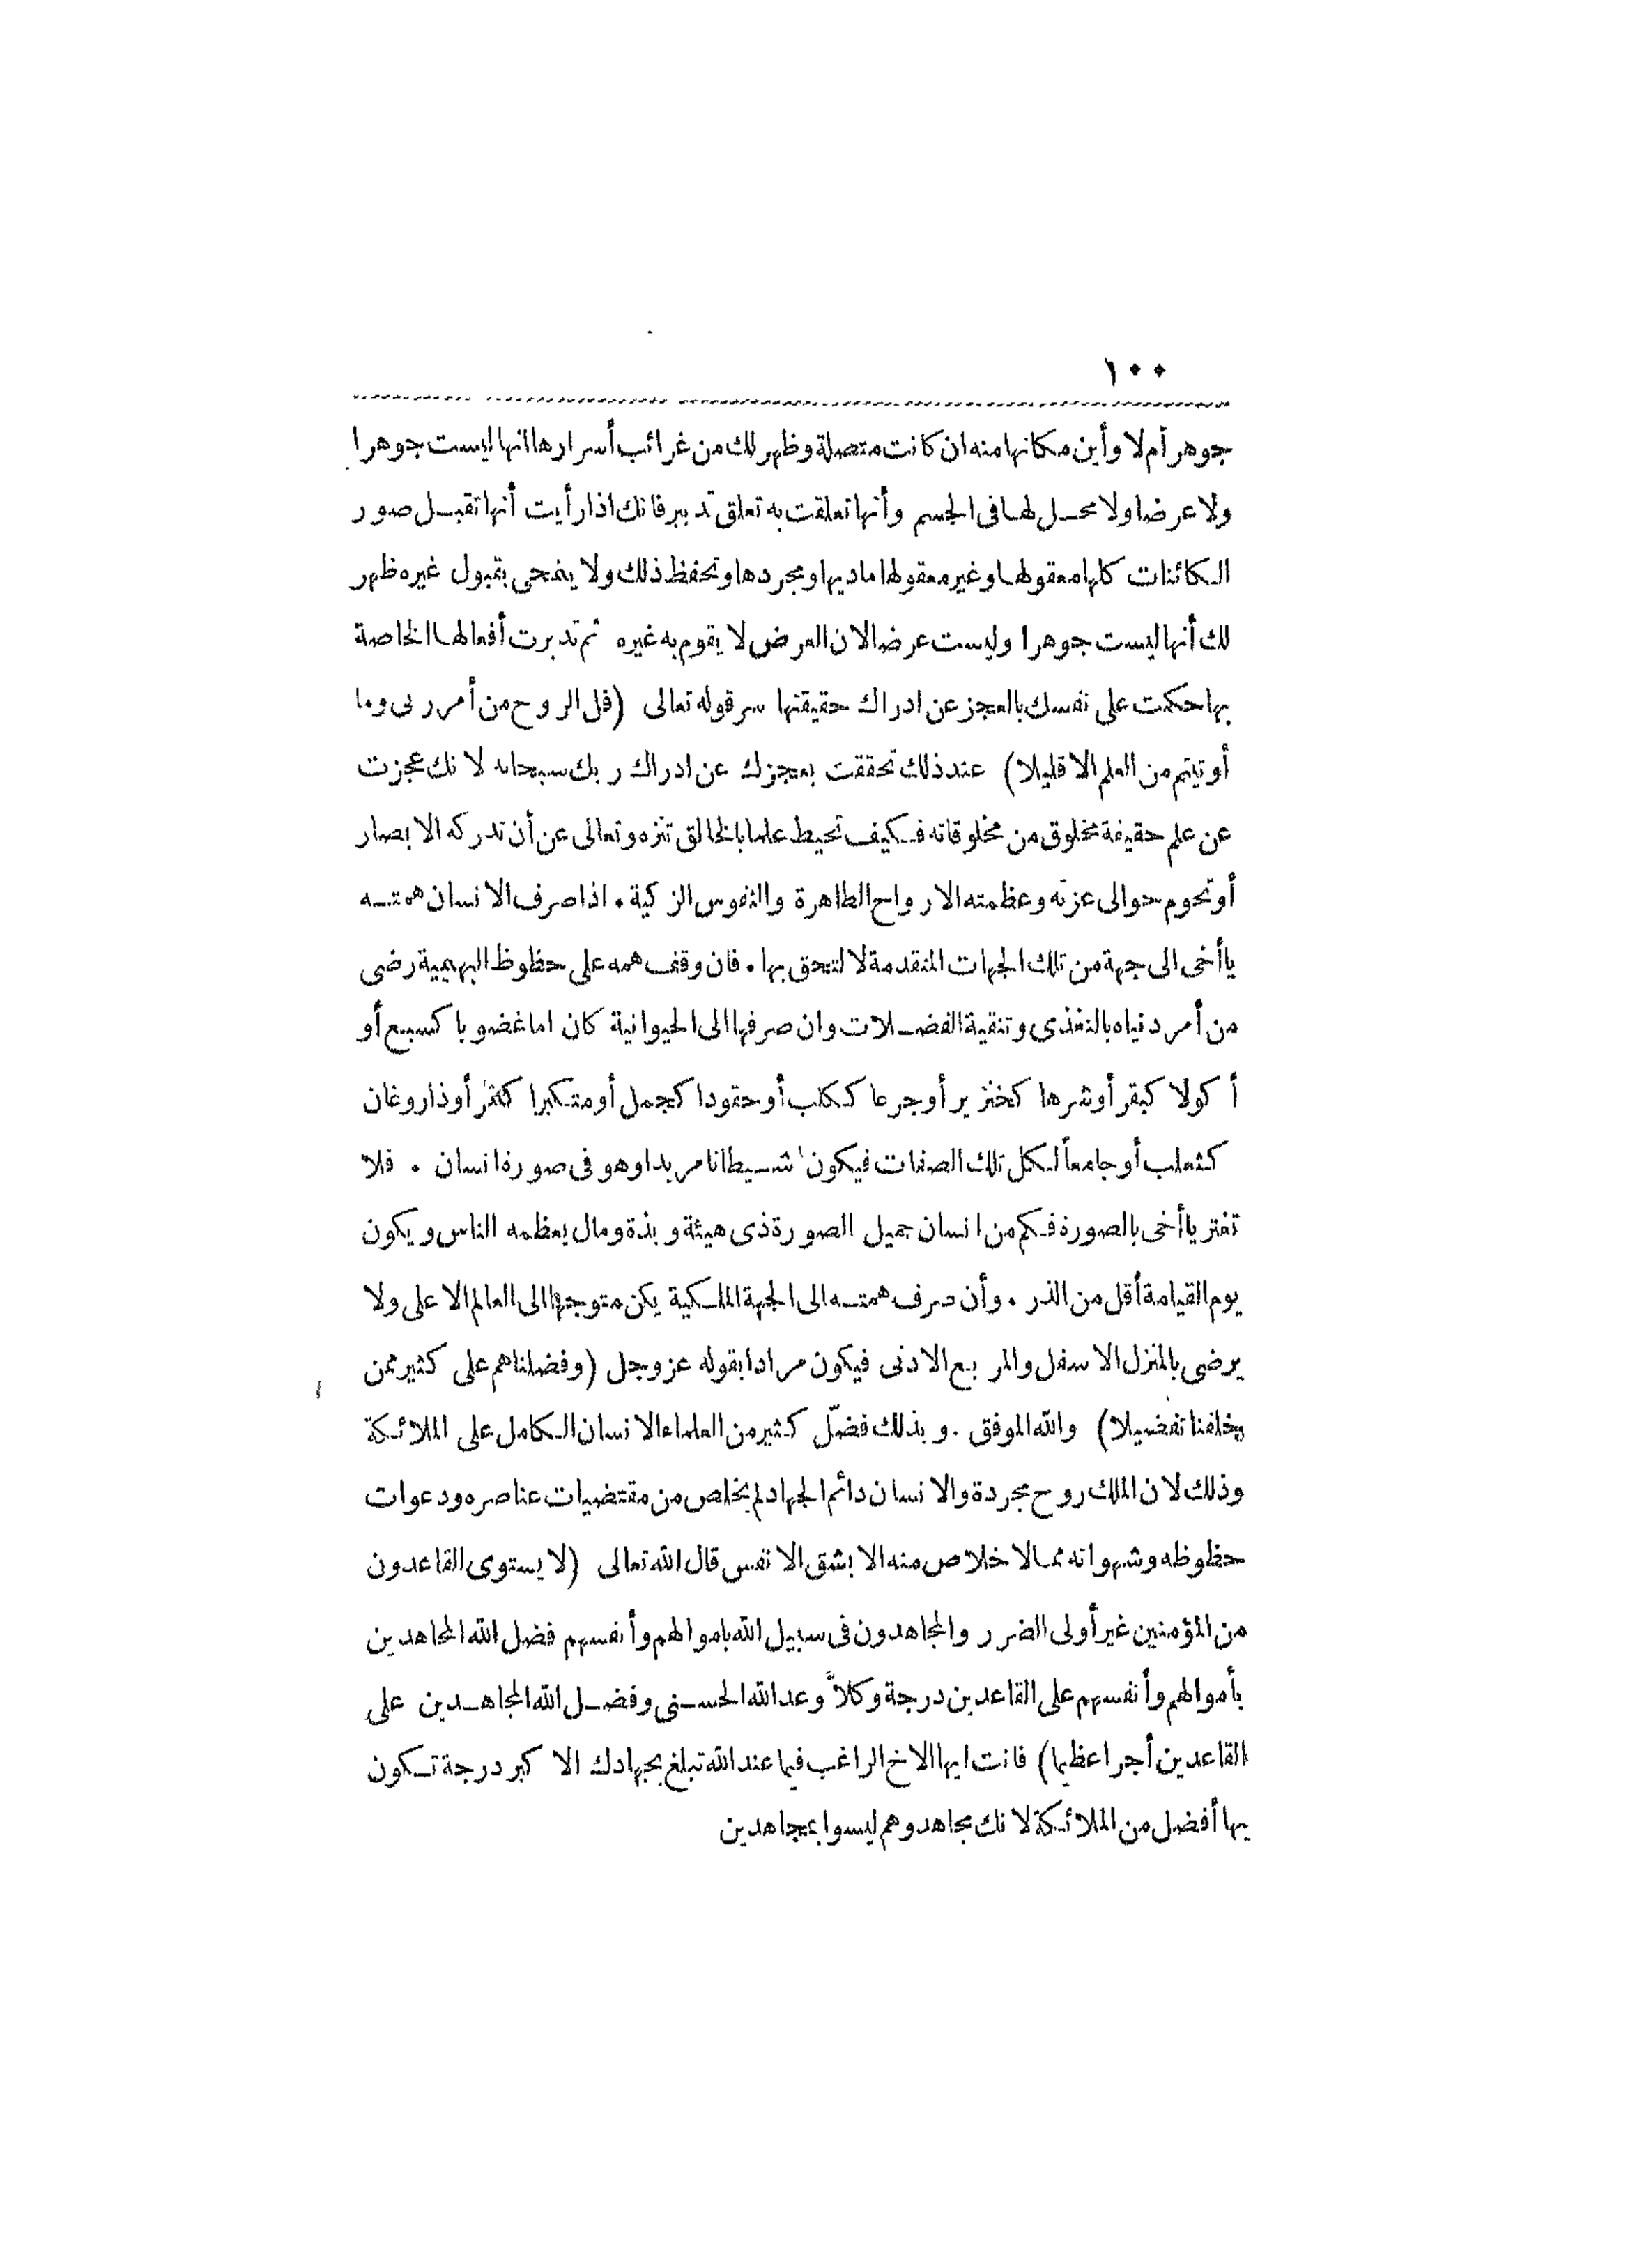 ١٠٠
جوهر أم لا وأين مكانها منه ان كانت متصلة وظهر لك من غرائب أسرارها انها ليست جوهرا
ولا عرضا ولا محل لها فى الجسم وأنها تعلقت به تعلق تدبير فانك اذا رأيت أنها تقبل صور
الكائنات كلها معقولها وغير معقولها ماديها ومجردها وتحفظ ذلك ولا ينمحى بقبول غيره ظهر
لك أنها ليست جوهرا وليست عرضا لان العرض لا يقوم به غيره ثم تدبرت أفعالها الخاصة
بها حكمت على نفسك بالعجز عن ادراك حقيقتها سر قوله تعالى (قل الروح من أمر ربى وما
أوتيتم من العلم الا قليلا) عند ذلك تحققت بعجزك عن ادراك ربك سبحانه لانك عجزت
عن علم حقيقة مخلوق من مخلوقاته فكيف تحيط علما بالخالق تنزه وتعالى عن أن تدركه الابصار
أو تحوم حوالى عزته وعظمته الارواح الطاهرة والنفوس الزكية . اذا صرف الانسان همته
يا أخى الى جهة من تلك الجهات المتقدمة لالتحق بها . فان وقف همه على حظوظ البهيمية رضى
من أمر دنياه بالتغذى وتنقية الفضلات وان صرفها الى الحيوانية كان اما غضوبا كسبع أو
أكولا كبقر أو شرها كخنزير أو جرعا ككلب أو حقودا كجمل أو متكبرا كنمر أو ذا روغان
كثعلب أو جامعاً لكل تلك الصفات فيكون شيطانا مريدا وهو فى صورة انسان . فلا
تغتر يا أخى بالصورة فكم من انسان جميل الصورة ذى هيئة وبذة ومال يعظمه الناس ويكون
يوم القيامة أقل من الذر . وأن صرف همته الى الجهة الملكية يكن متوجها الى العالم الاعلى ولا
يرضى بالمنزل الاسفل والمربع الادنى فيكون مرادا بقوله عز وجل (وفضلناهم على كثير ممن
خلقنا تفضيلا) والله الموفق . وبذلك فضّل كثير من العلماء الانسان الكامل على الملائكة
وذلك لان الملك روح مجردة والانسان دائم الجهاد لم يخلص من مقتضيات عناصره ودعوات
حظوظه وشهواته مما لا خلاص منه الا بشق الانفس قال الله تعالى (لا يستوى القاعدون
من المؤمنين غير أولى الضرر والمجاهدون فى سبيل الله باموالهم وأنفسهم فضل الله المجاهدين
بأموالهم وأنفسهم على القاعدين درجة وكلاًّ وعد الله الحسنى وفضل الله المجاهدين على
القاعدين أجرا عظيما) فانت ايها الاخ الراغب فيما عند الله تبلغ بجهادك الاكبر درجة تكون
بها أفضل من الملائكة لانك مجاهد وهم ليسوا بمجاهدين